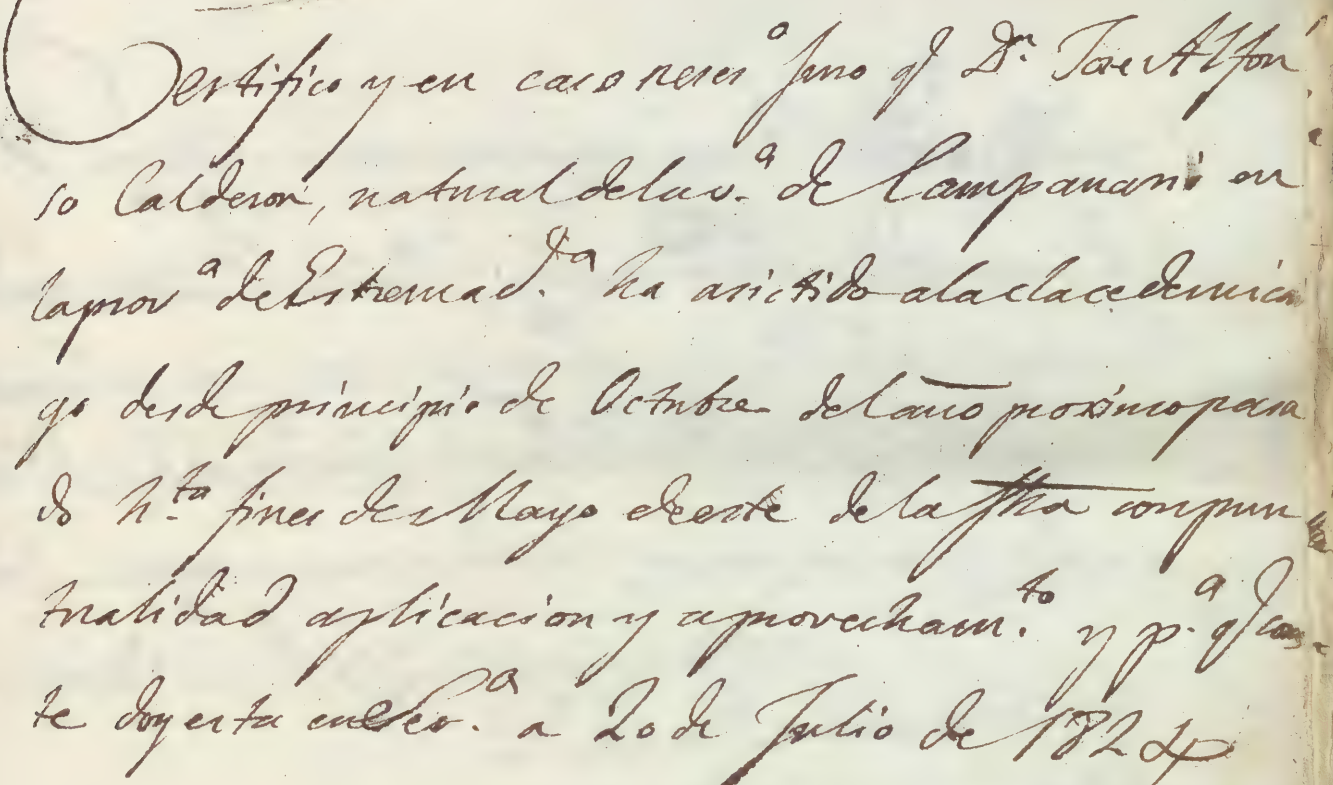 Certifico y en caso neses.º juro q.e D.n Jose Alfon
so Calderon, natural de la v.a de Campanario en
la prov.a de Estremad.ra ha asistido a la clase de mi car
go desde principio de Octubre del año proximo pasa
do h.ta fines de Mayo de este de la fha con pun
tualidad aplicacion y aprovecham.to y p.a q.e cons
te doy esta en Sev.a a 20 de Julio de 1824